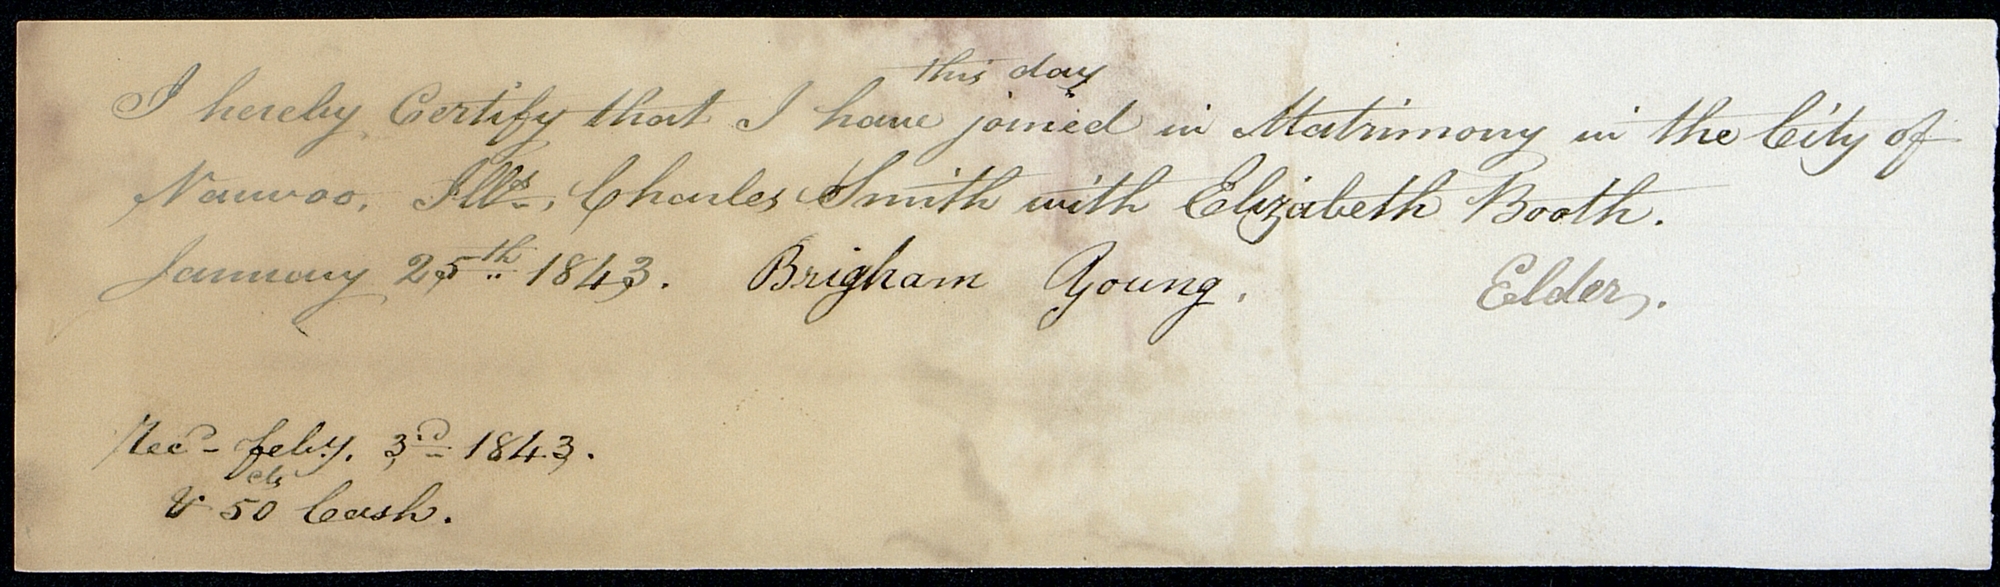 this day
I hereby Certify that I have joined in Matrimony in the City of
Nauvoo, Ills., Charles Smith with Elizabeth Booth.
January 25th 1843. Brigham Young. Elder.
Recd- feby. 3rd 1843.
cts
& 50 Cash.